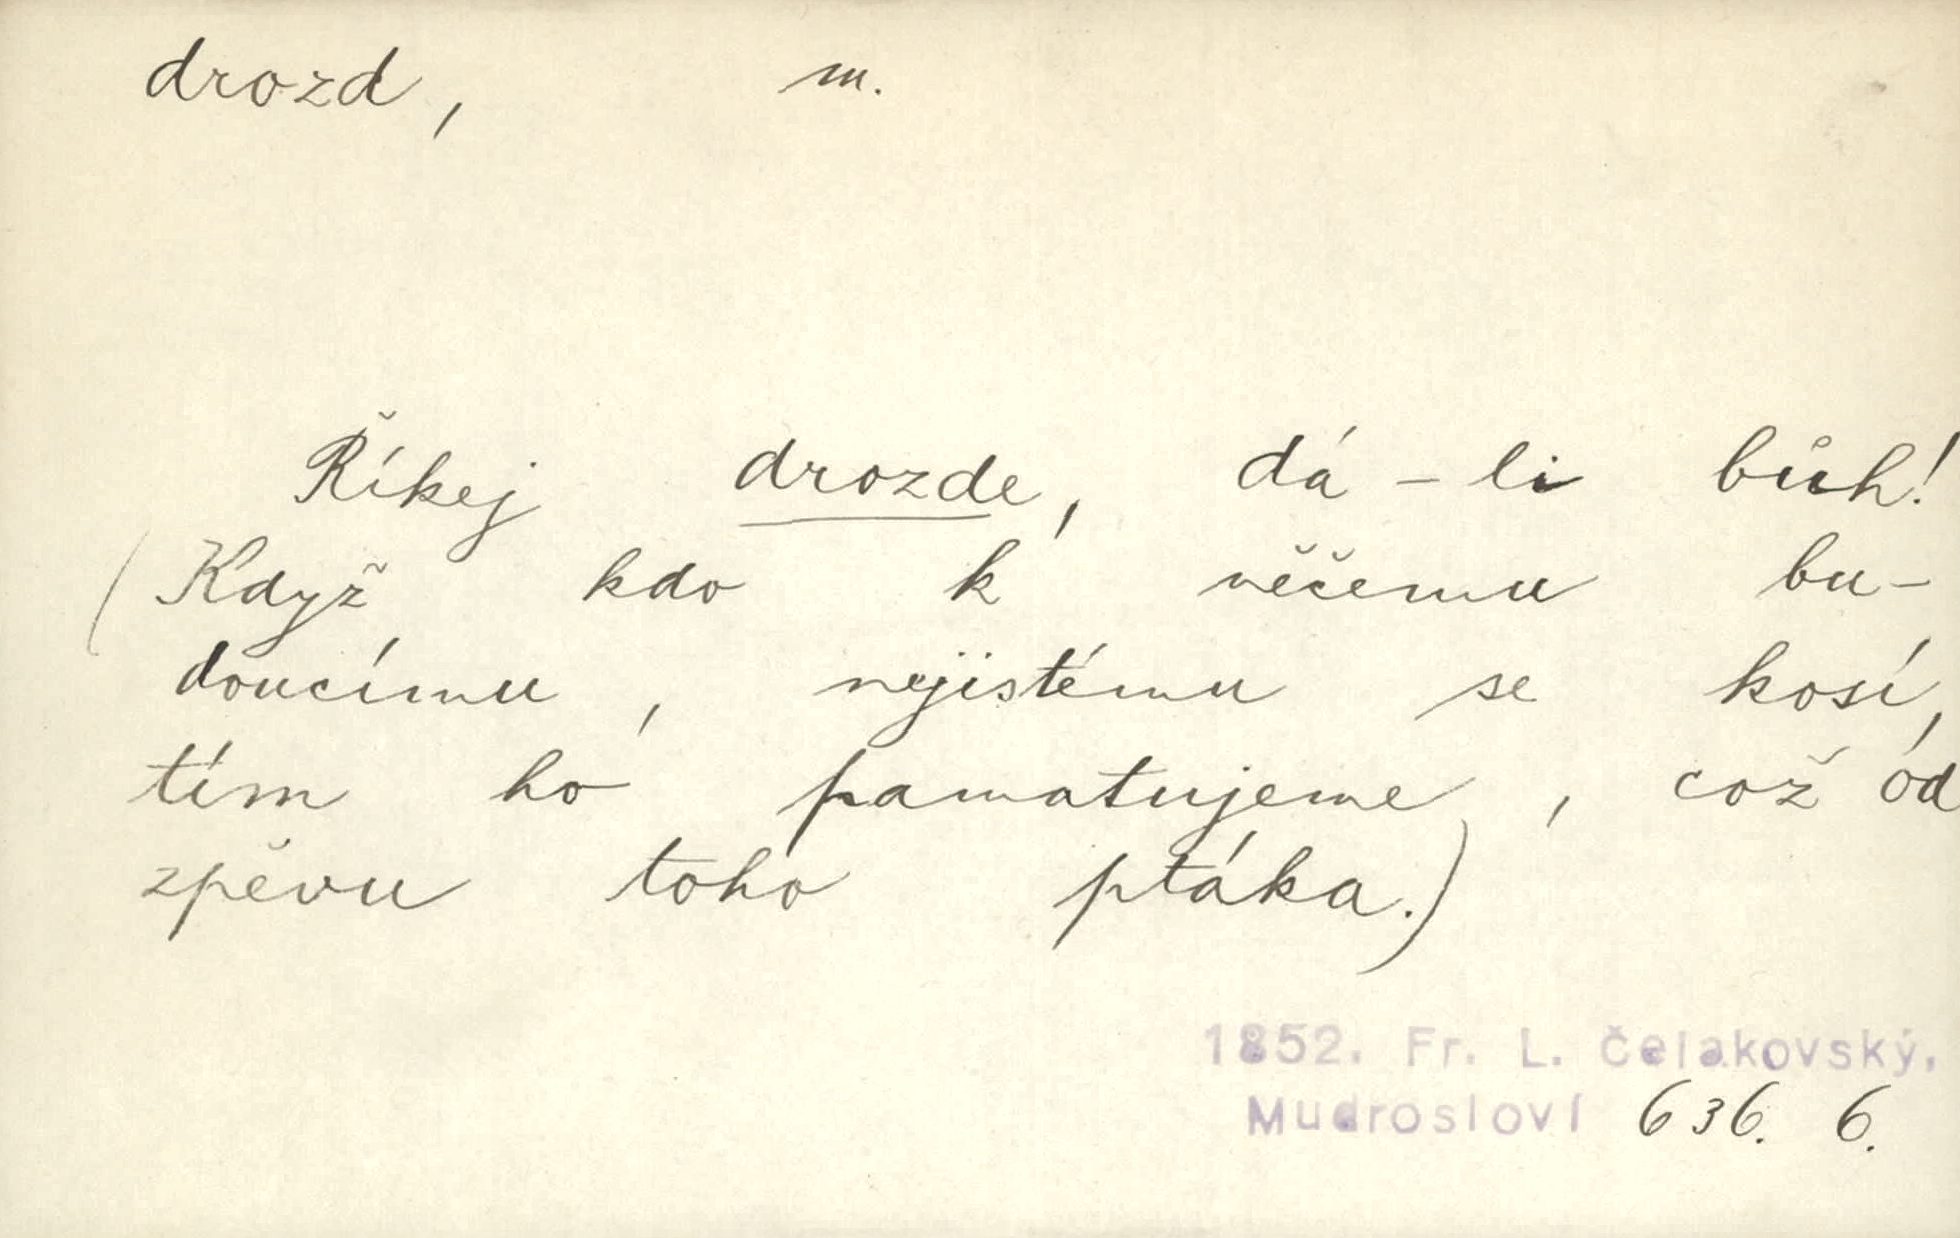 drozd, m.
Říkej drozde, dá-li bůh!
(Když kdo k něčemu bu-
doucímu, nejistému se kosí,
tím ho pamatujeme, což od
zpěvu toho ptáka.)
1852. Fr. L. Čelakovský,
Mudrosloví 636. 6.